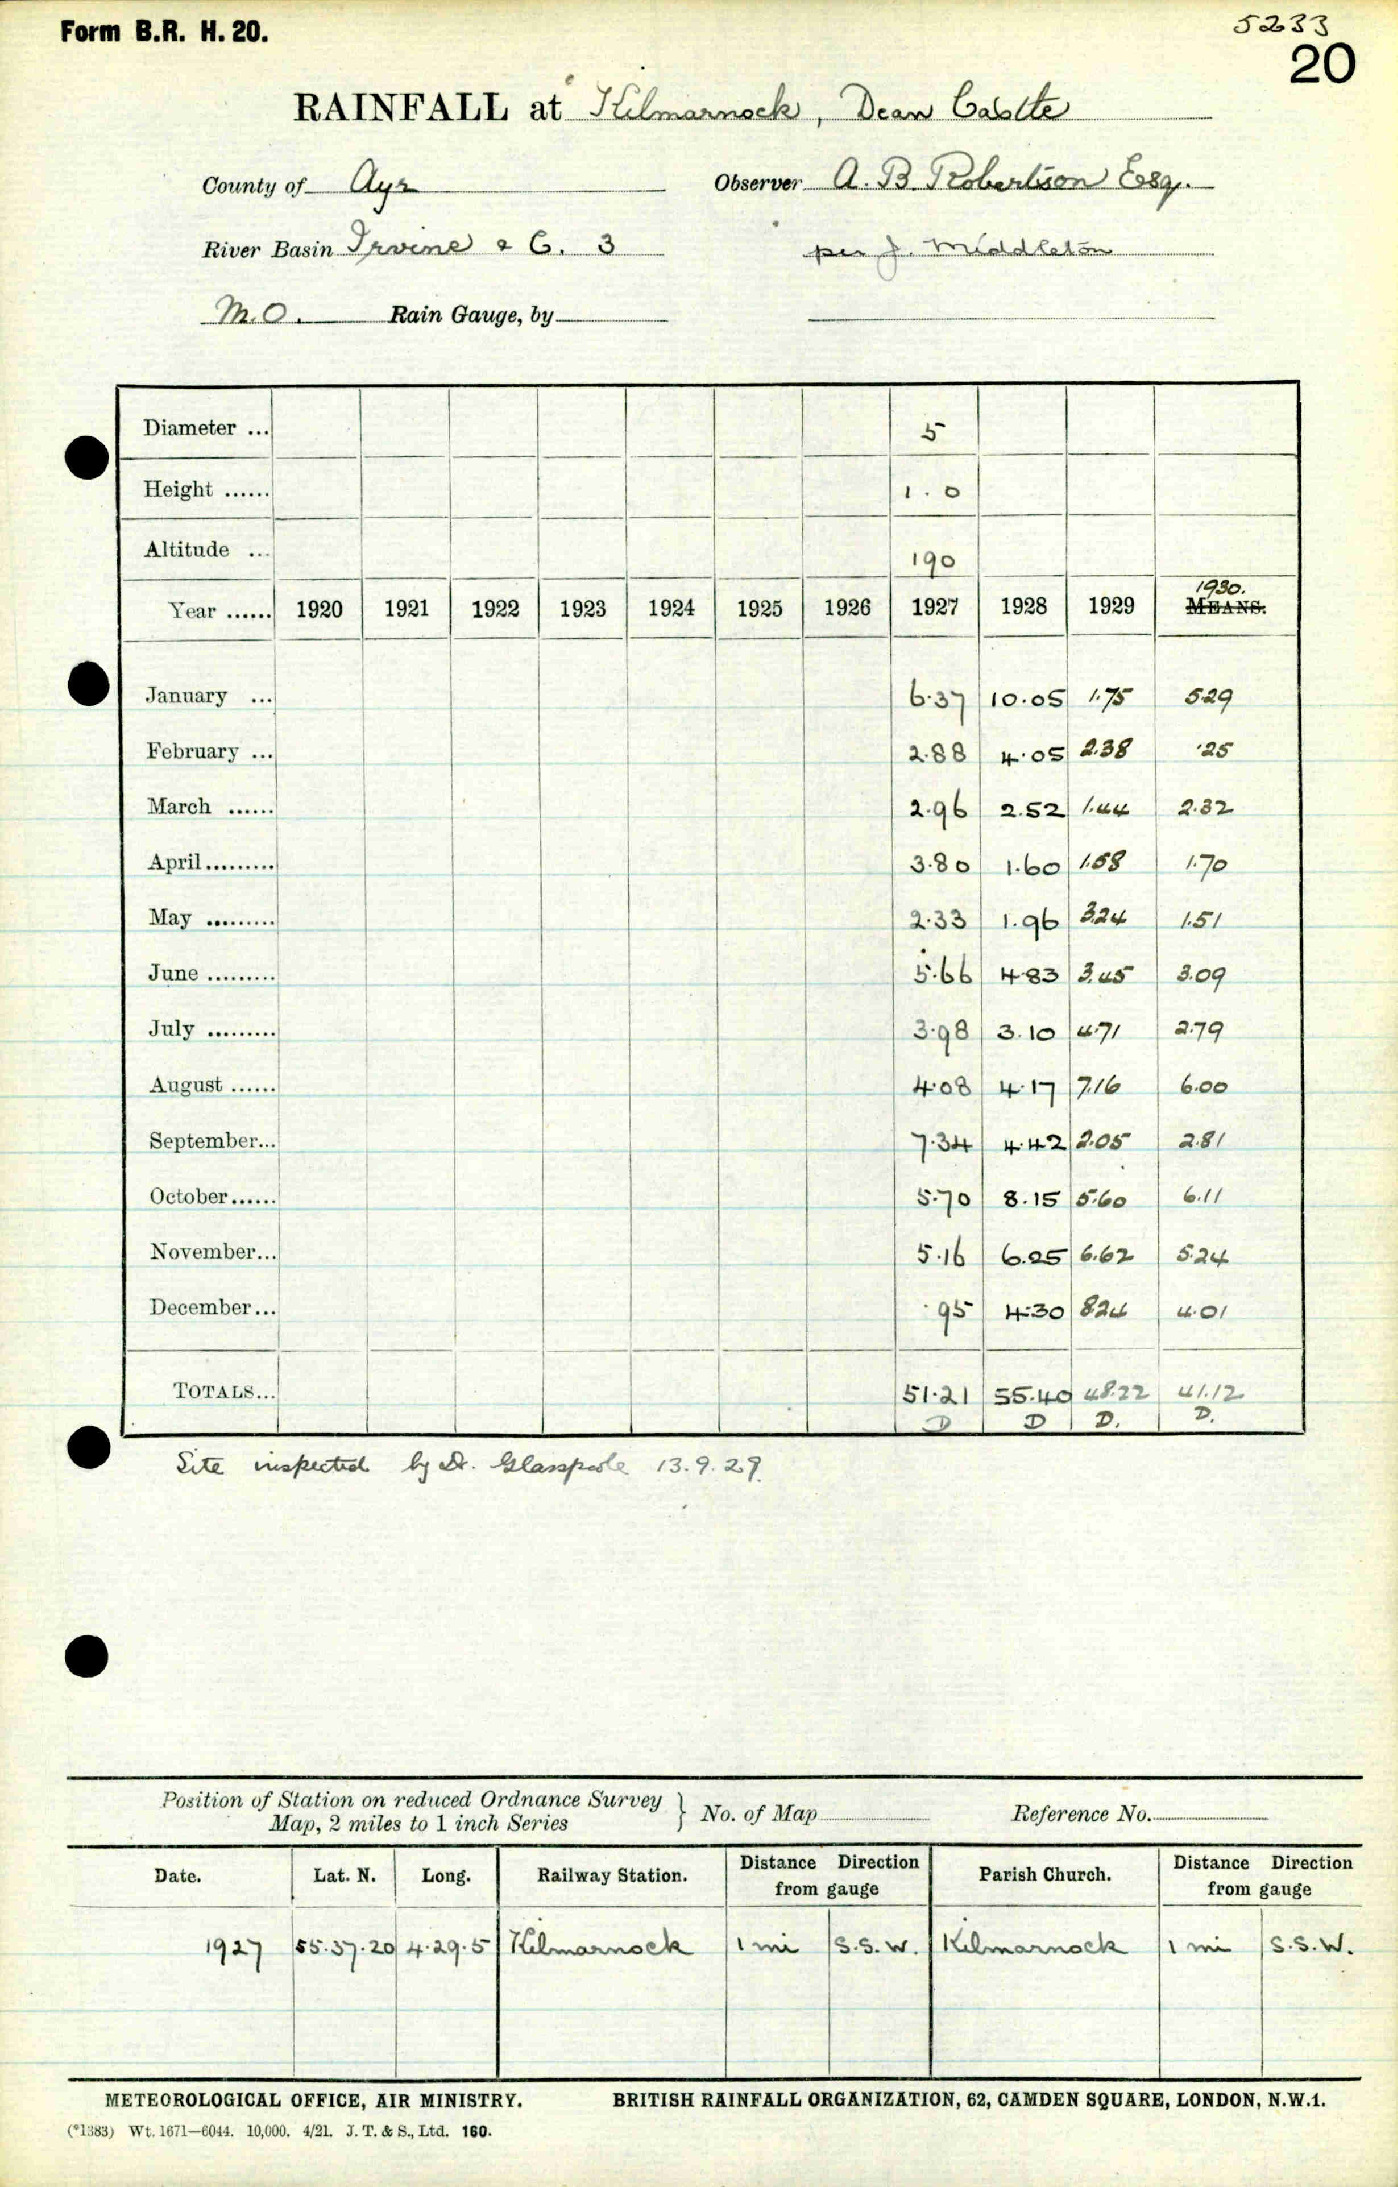 Form B.R. H. 20.
5233
20
RAINFALL at Kilmarnock, Dean Castle
County of Ayr Observer A. B. Robertson Esq.
River Basin Irvine & C. 3 per J. Middleton
M.O. Rain Gauge, by
Diameter ... 5
Height ...... 1.0
Altitude ... 190
1930.
Year ...... 1920 1921 1922 1923 1924 1925 1926 1927 1928 1929 MEANS.
January ... 6.37 10.05 1.75 5.29
February ... 2.88 4.05 2.38 .25
March ...... 2.96 2.52 1.44 2.32
April......... 3.80 1.60 1.58 1.70
May ......... 2.33 1.96 3.24 1.51
June ......... 5.66 4.83 3.45 3.09
July ......... 3.98 3.10 4.71 2.79
August ...... 4.08 4.17 7.16 6.00
September... 7.34 4.42 2.05 2.81
October...... 5.70 8.15 5.60 6.11
November... 5.16 6.25 6.62 5.24
December... .95 4.30 8.24 4.01
TOTALS... 51.21 55.40 48.22 41.12
D D D. D.
Site inspected by Dr. Glasspoole 13.9.29.
Position of Station on reduced Ordnance Survey
Map, 2 miles to 1 inch Series } No. of Map Reference No.
Date. Lat. N. Long. Railway Station. Distance Direction from gauge Parish Church. Distance Direction from gauge
1927 55.37.20 4.29.5 Kilmarnock 1 mi S.S.W. Kilmarnock 1 mi S.S.W.
METEOROLOGICAL OFFICE, AIR MINISTRY. BRITISH RAINFALL ORGANIZATION, 62, CAMDEN SQUARE, LONDON, N.W.1.
(*1383) Wt. 1671—6044. 10,000. 4/21. J. T. & S., Ltd. 160.